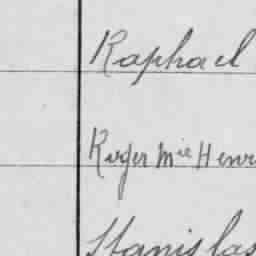 Raphael
Roger Mie Henri
Stanislas